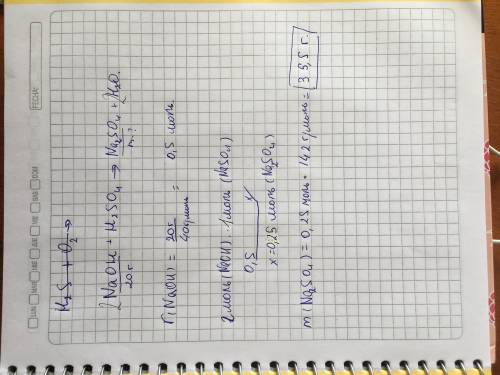 FECHA:
LUN MAR MIE JUE VIE SAB DOM
H₂S + O₂ →
2NaOH + H₂SO₄ → Na₂SO₄ + 2H₂O.
20г m?
n(NaOH) = 20г / 40г/моль = 0,5 моль
2 моль (NaOH) : 1 моль (NaSO₄)
0,5 x
x = 0,25 моль (Na₂SO₄)
m (Na₂SO₄) = 0,25 моль · 142 г/моль = 35,5 г.